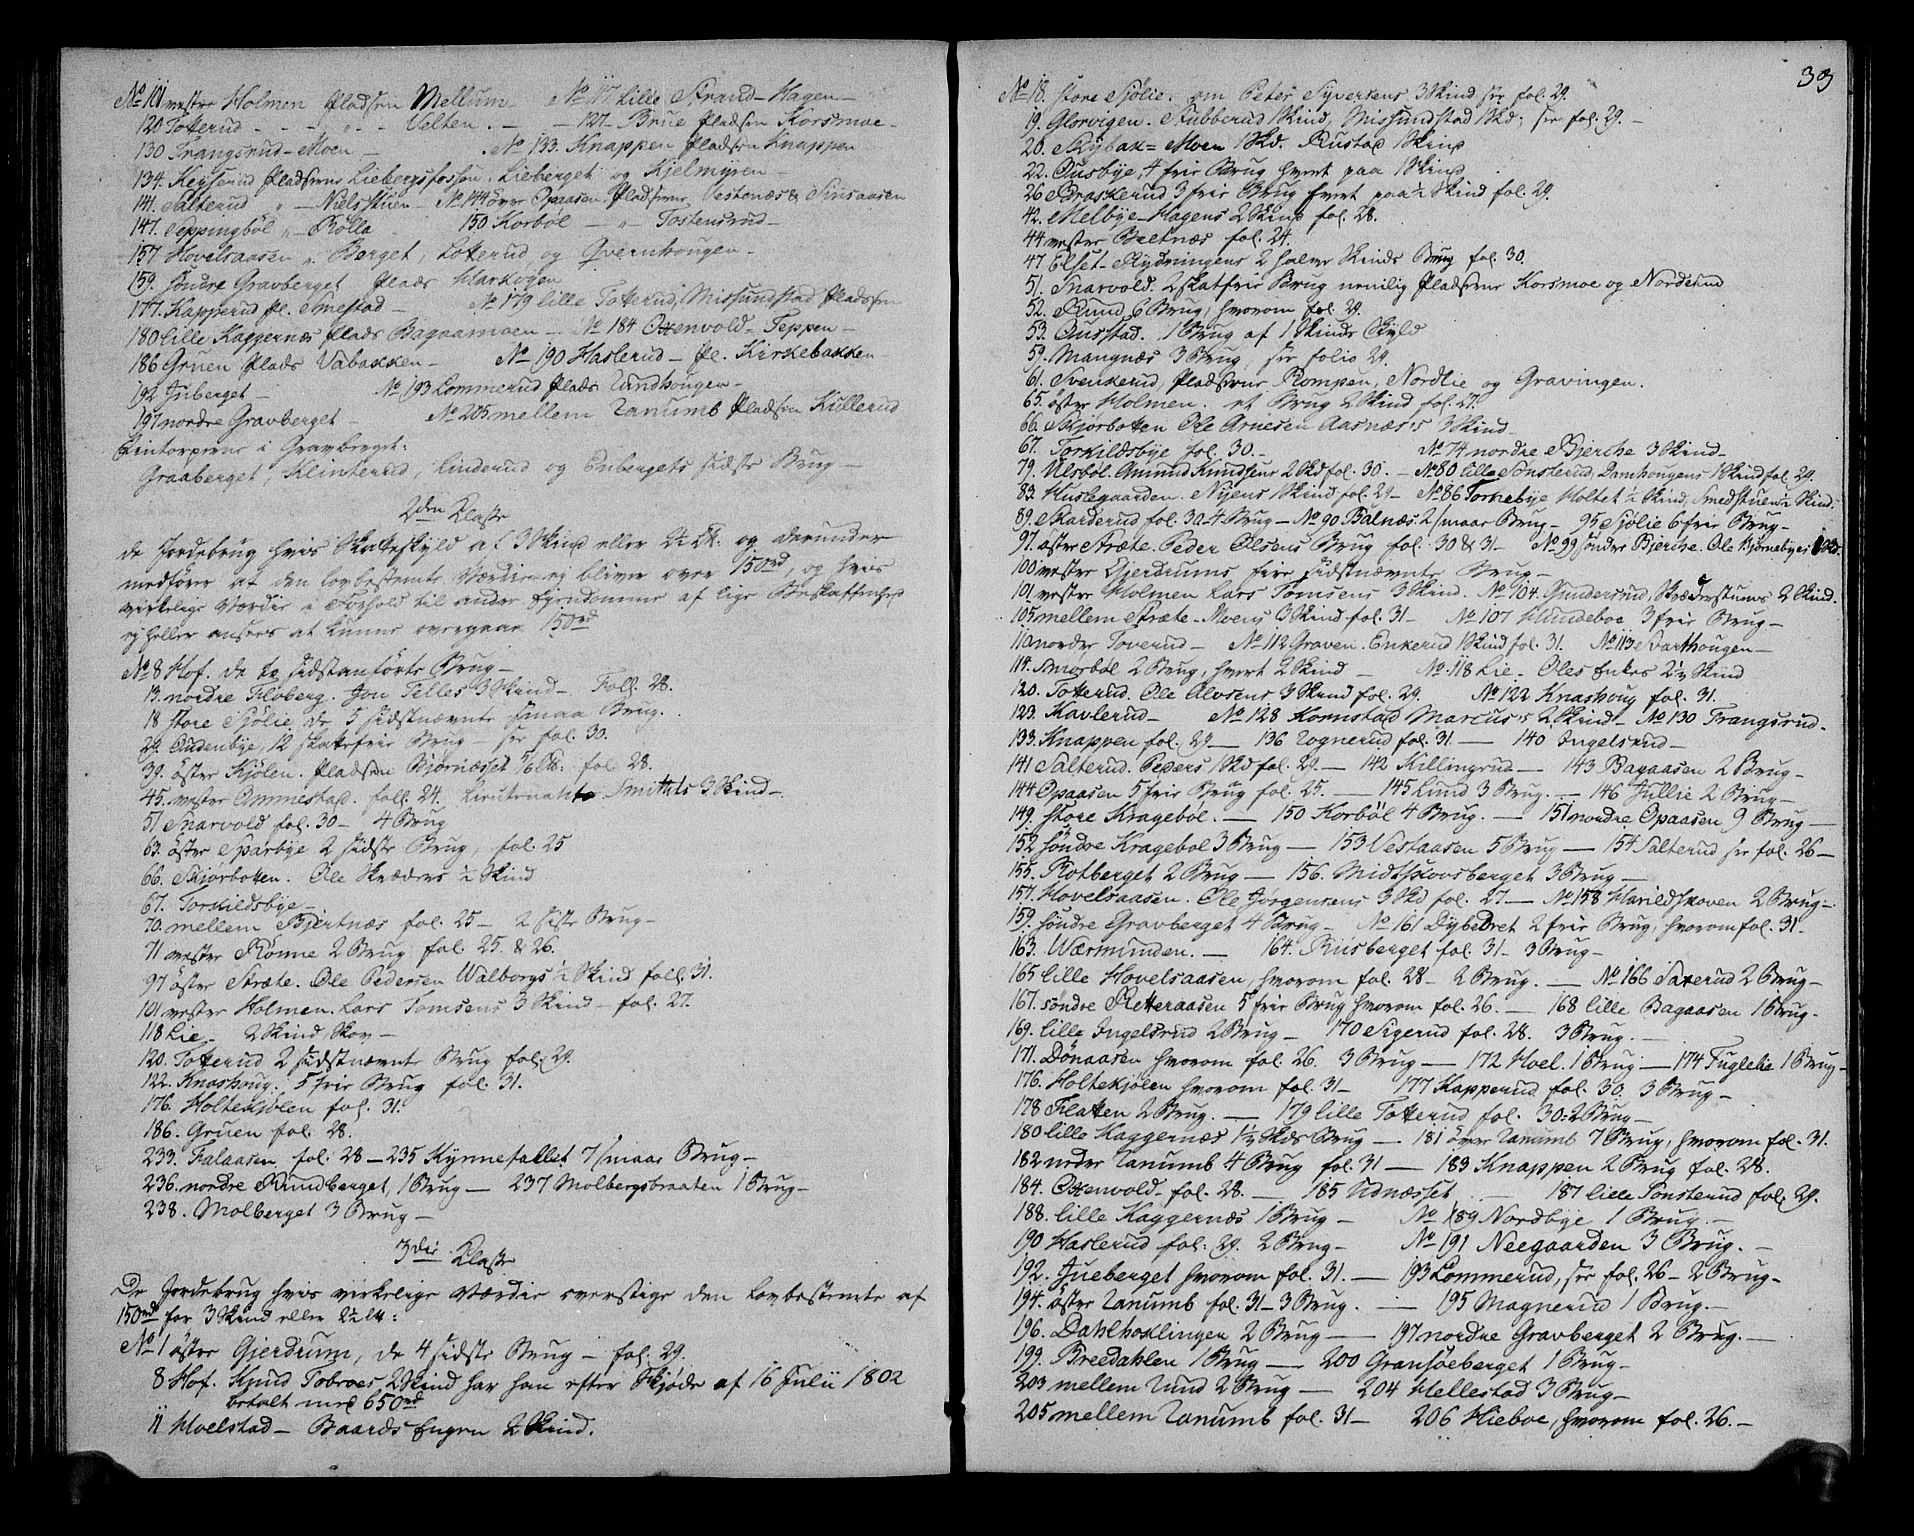 No 101 vestre Holmen Pladsen Mellum No 117 Lille Strand-Hagen
120 Totterud - - - „ - - Velten. - - 127 - Brue Pladsen Korsmoe
130 Trangsrud-Moen No 133. Knappen Pladsen Knappen
134. Keyserud Pladserne Liebergsfossen, Lieberget og Kjelmyren
141. Salterud „ - Nielsstuen - No 144 över Opaasen. Pladserne Vestenæs & Siiraasen
147. Teppingböl „ - Rölla 150 Korböl - „ - Tostensrud
157 Hovelsaasen „ Berget, Lotterud og Qvernhougen
159. söndre Gravberget Plads Markvogen
177. Kapperud Pl. Smestad No 179 Lille Totterud, Missundstad Pladsen
180 Lille Kaggernæs Plads Bagaamoen - No 184 Oxenvold - Teppen
186 Gruen Plads Vabakken - No 190 Haslerud - Pl. Kirkebakken
192 Juberget - No 193 Lommerud Plads Lundhougen
197 nordre Gravberget - No 205 mellem Tanumb Pladsen Kullerud
Fintorperne i Gravberget:
Graaberget, Klinterud, Linderud og Enbergets sidste Brug
2den Classe
de Jordebrug hvis Skatteskyld af 3 Skind eller 2½ Lt. og derunder
medfører at den lovbestemte Værdie ej bliver over 150rd, og hvis
virkelige Værdie i Forhold til andre Eiendomme af lige Beskaffenhed
ej heller ansees at kunne overgaae 150rd
No 8 Hof. de to sidstanførte Brug
13. nordre Floberg. Jon Telles 3 Skind - Foll. 28.
18 store Sjölie de 5 sidstnævnte smaa Brug.
29. Audenbye, 12 skattefrie Brug - see fol. 30.
39. öster Kjölen. Pladsen Björnæsset fol. 28
45. vester Ammestad. foll. 24. Lieutenant Smithts 3 Skind
51 Snarvold fol. 30 - 4 Brug
63. öster Sparbye 2 sidste Brug, fol. 25
66. Skjörbotten. Ole Skræders ½ Skind
67. Torkildsbye
70. mellem Bjertnæs fol. 25 - 2 siste Brug
71 vester Rönne 2 Brug fol. 25. & 26.
97 öster Stræte. Ole Pedersen Walborgs ½ Skind foll. 31.
101 vester Holmen. Lars Tomsens 3 Skind - fol. 27.
118 Lie 2 Skind Skov
120. Totterud 2 sidstnævnte Brug fol. 29.
122. Knashoug. 5 frie Brug fol. 31.
176. Holtekjölen fol. 31.
186. Gruen fol. 28.
233. Falaasen fol. 28 - 235 Kynnefallet 7 smaae Brug
236. nordre Rundberget, 1 Brug - 237 Molbergsbraaten 1 Brug
238. Molberget 3 Brug
3die Classe
De Jordebrug hvis virkelige Værdie overstige den lovbestemte af
150rd for 3 Skind eller 2½ Lt:
No 1 öster Gjerdrum, de 4 sidste Brug - fol. 29.
8 Hof. Knud Tobroes 2 Skind har han efter Skjöde af 16 Julii 1802
betalt med 650rd
11 Moelstad - Baards Engen 2 Skind.
33
No 18. store Sjölie. om Peter Syversens 3 Skind see fol. 29.
19. Glorvigen. Stubberud 1 Skind, Missundstad 1 Skd; see fol. 29.
20. Rybak=Moen 1 Skd. Rustad 1 Skind
22. Ousbye, 4 frie Brug hvert paa 1 Skind
26 Braskerud 3 frie Brug hvert paa ½ Skind fol. 29.
42. Melbye-Hagens 2 Skind fol. 28.
44 vester Bæltnæs fol. 24.
47 Elset - Rydningens 2 halve Skinds Brug fol. 30.
51. Snarvold. 2 skatfrie Brug nemlig Pladserne Korsmoe og Nordstrud
52. Rund 6 Brug, hvorom fol. 29.
53. Ousstad. 1 Brug af 1 Skinds Skyld
59. Mangnæs 3 Brug see folio 29
61. Svenkerud, Pladserne Rompen, Nordlie og Gravingen.
65. öster Holmen. et Brug 2 Skind fol. 27.
66. Skjörbotten Ole Arnesen Aasnæs's 3 Skind
67. Torkildsbye fol. 30. - No 74 nordre Bjerche 3 Skind
79. Ulsböl. Amund Knudsens 2 Skd fol. 30. - No 80 Lille Sönsterud, Damhougens 1 Skind fol. 29.
83. Huslegaarden. Nyens 1 Skind fol. 29 - No 86 Torkebye Holtet ½ Skind, Smedstuen ½ Skind.
89. Skarderud fol. 30 - 4 Brug - No 90 Balnæs 2 smaae Brug - 95 Sjölie 6 frie Brug
97. öster Stræte. Peder Olsens Brug fol. 30 & 31 - No 99 söndre Bjerche. Ole Bjørnebyes
100 vester Gjerdrums fire sidstnævnte Brug
101 vester Holmen Lars Tomsens 3 Skind. No 104. Gundersrud, Skrædderstuens 2 Skind.
105. mellem Stræte. Moens 3 Skind fol. 31 - No 107 Hundeboe 3 frie Brug
110 nordre Toverud - No 112 Graven. Enkerud 1 Skind fol. 31. No 113 Svarthougen
114. Smörböl 2 Brug, hvert 2 Skind No. 118 Lie. Oles Enkes 2½ Skind
120. Totterud. Ole Alvsens 3 Skind fol. 29. No 122 Knashoug fol. 31.
123. Kavlerud - No 128 Kornstad Marcus's 2 Skind - No 130 Trangsrud.
133. Knappen fol. 29 - 136 Rognerud fol. 31. - 140 Ingelsrud
141 Salterud. Peders 1 Skd fol. 29. - 142 Killingrud - 143 Bagaasen 2 Brug
144 Opaasen 5 frie Brug fol. 25. - 145 Lund 3 Brug. - 146 Jullie 2 Brug
149. store Krageböl. - 150 Korböl 4 Brug. - 151 nordre Opaasen 9 Brug
152 söndre Krageböl 3 Brug - 153 Vestaasen 5 Brug - 154 Salterud see fol. 26
155. Rotberget 2 Brug - 156. Midtskovsberget 3 Brug
157. Hovelsaasen. Ole Jörgensens 3 Skd fol. 27. - No 158 Havildskoven 2 Brug
159. söndre Gravberget 4 Brug - No 161 Dybedret 2 frie Brug, hvorom fol. 31
163. Wærmunden. - 164. Riisberget fol. 31 - 3 Brug
165 lille Hovelsaasen hvorom fol. 28 - 2 Brug. - No 166 Saterud 2 Brug
167. söndre Retteraasen 5 frie Brug hvorom fol. 26. - 168 Lille Bagaasen 1 Brug.
169. Lille Ingelsrud 2 Brug - 170 Sigerud fol. 28. 3 Brug.
171. Dönaasen hvorom fol. 26. 3 Brug - 172 Moel. 1 Brug - 174 Fuglelie 1 Brug
176. Holtekjölen hvorom fol. 31 - 177 Kapperud fol. 30. 3 Brug
178 Flatten 2 Brug. - 179 Lille Totterud fol. 30: 2 Brug
180 Lille Kaggernæs 1½ Skds Brug - 181 över Tanumb 7 Brug, hvorom fol. 31.
182 neder Tanumb 4 Brug fol. 31 - 183 Knappen 2 Brug fol. 28.
184. Oxenvold fol. 28. - 185 Udnæsset - 187 Lille Sönsterud fol. 29.
188. Lille Kaggernæs 1 Brug - No 189 Nordbye 1 Brug.
190 Haslerud fol. 29. 2 Brug - No 191 Neegaarden 3 Brug.
192. Jueberget hvorom fol. 31. - 193 Lommerud, see fol. 26 - 2 Brug
194. öster Tanumb fol. 31 - 3 Brug. - 195 Magnerud 1 Brug.
196. Dahlhoklingen 2 Brug - 197 nordre Gravberget 2 Brug.
199. Breedahlen 1 Brug - 200 Gransöeberget 1 Brug
203 mellem Lund 2 Brug - 204 Hellestad 3 Brug
205 mellem Tanumb fol. 31 - 206 Hieboe, hvorom fol. 26.